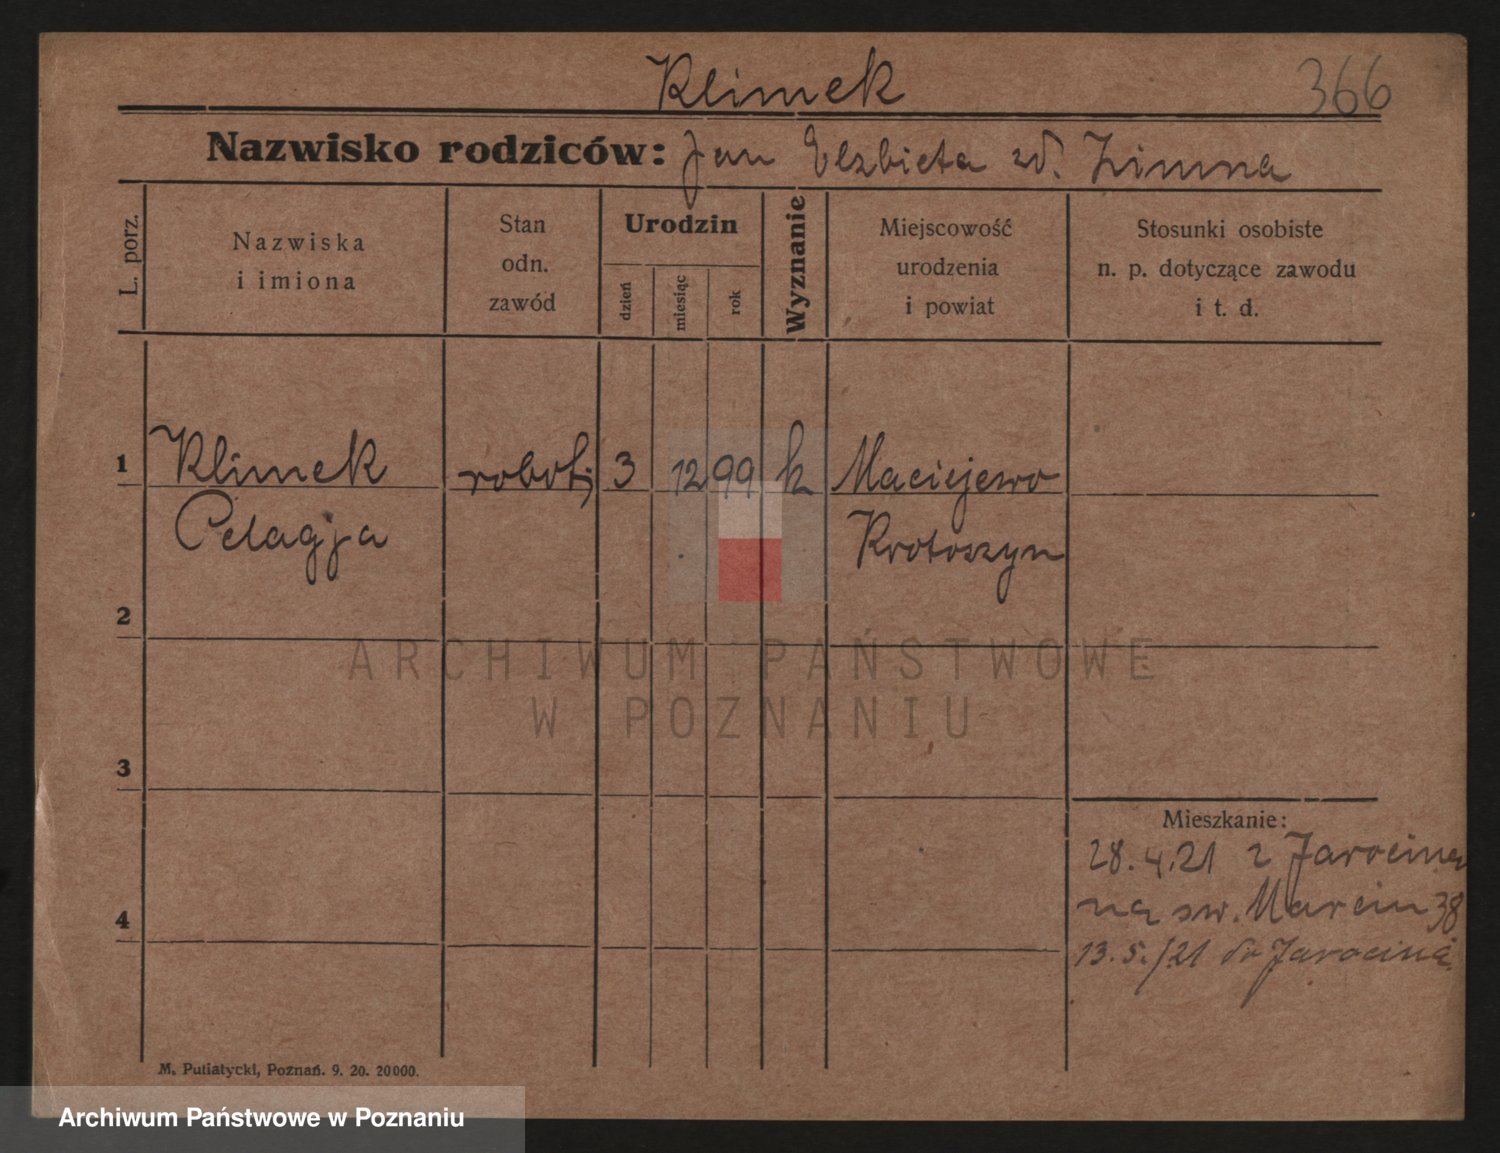 Klimek
366
Nazwisko rodziców: Jan Elzbieta zd. Zimna
L. porz.
Nazwiska
i imiona
Stan
odn.
zawód
Urodzin
dzień
miesiąc
rok
Wyznanie
Miejscowość
urodzenia
i powiat
Stosunki osobiste
n. p. dotyczące zawodu
i t. d.
1 Klimek robot; 3 12 99 k Maciejewo
Pelagja Krotoszyn
2
ARCHIWUM PAŃSTWOWE
W POZNANIU
3
Mieszkanie:
28.4.21 z Jarocina
na św. Marcin 38
4
13.5./21 do Jarocina
M. Putiatycki, Poznań. 9. 20. 20000.
Archiwum Państwowe w Poznaniu